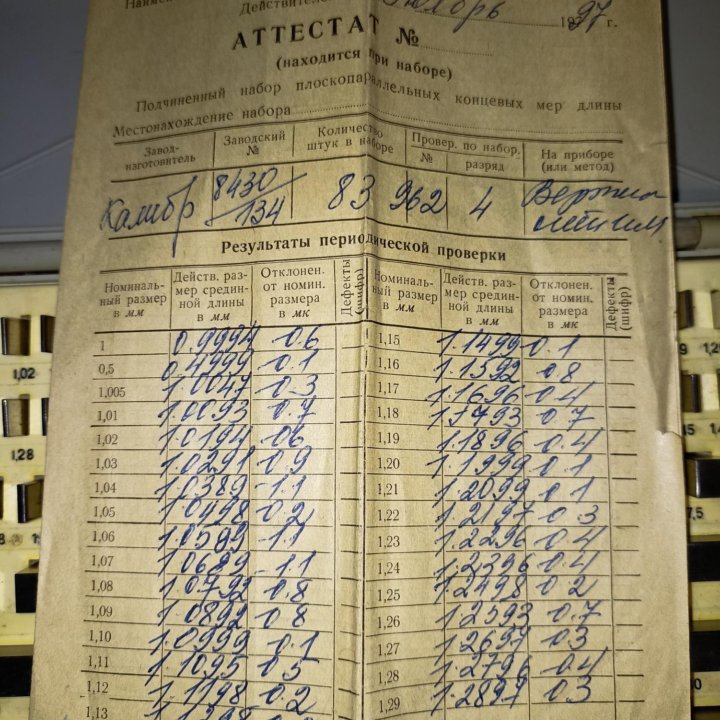 Действителен
Октябрь 1997 г.
АТТЕСТАТ №
(находится при наборе)
Подчиненный набор плоскопараллельных концевых мер длины
Местонахождение набора
Завод-изготовитель Заводский № Количество штук в наборе Провер. по набор. № разряд На приборе (или метод)
Калибр 8430/134 83 962 4
Результаты периодической проверки
Номинальный размер в мм Действ. размер срединной длины в мм Отклонен. от номин. размера в мк Дефекты (шифр) Номинальный размер в мм Действ. размер срединной длины в мм Отклонен. от номин. размера в мк Дефекты (шифр)
1 0.9994 0.6 1,15 1.1499 0.1
0,5 0.4999 0.1 1,16 1.1592 0.8
1,005 1.0047 0.3 1,17 1.1696 0.4
1,01 1.0093 0.7 1,18 1.1793 0.7
1,02 1.0194 06 1,19 1.1896 0.4
1,03 1.0291 0.9 1,20 1.1999 0.1
1,04 1.0389 1.1 1,21 1.2099 0.1
1,05 1.0498 0.2 1,22 1.2197 0.3
1,06 1.1 1,23 1.2296 0.4
1,07 1.0689 1.1 1,24 1.2396 0.4
1,08 1.0792 0.8 1,25 1.2498 0.2
1,09 1.0892 0.8 1,26 1.2593 0.7
1,10 1.0999 0.1 1,27 1.2697 0.3
1,11 1.1095 0.5 1,28 1.2796 0.4
1,12 1.1198 0.2 1,29 1.2897 0.3
1,13
1,02
1,28